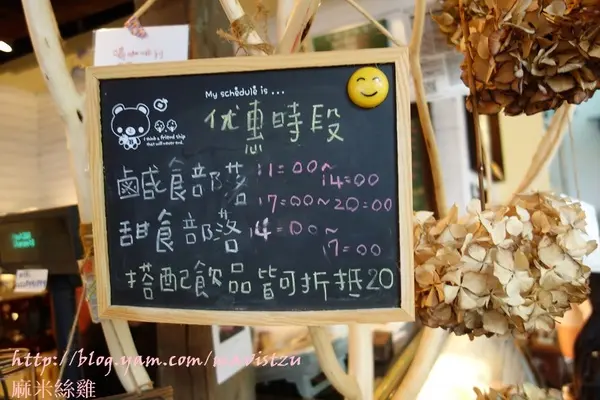 My schedule is ...
优惠時段
鹹食部落 11=00~
14=00
17=00~20=00
甜食部落 14=00~
17=00
搭配飲品皆可折抵20
http://blog.yam.com/mavistzu
麻米絲雞